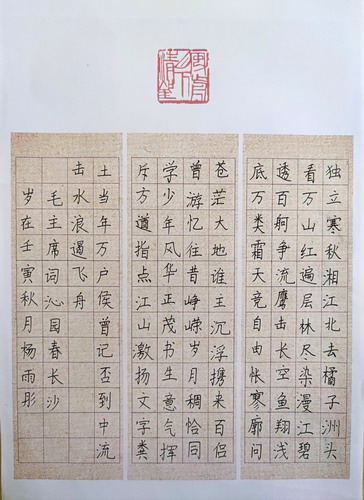 独立寒秋湘江北去橘子洲头
看万山红遍层林尽染漫江碧
透百舸争流鹰击长空鱼翔浅
底万类霜天竞自由怅寥廓问
苍茫大地谁主沉浮携来百侣
曾游忆往昔峥嵘岁月稠恰同
学少年风华正茂书生意气挥
斥方遒指点江山激扬文字粪
土当年万户侯曾记否到中流
击水浪遏飞舟
毛主席词沁园春长沙
岁在壬寅秋月杨雨彤